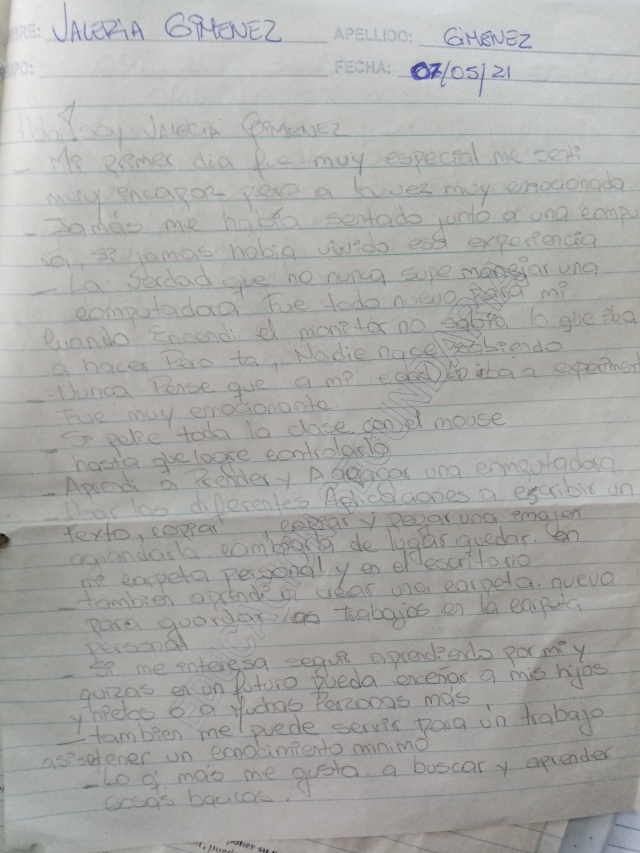 BRE: VALERIA GIMENEZ APELLIDO: GIMENEZ
PO: FECHA: 07/05/21
Hola! soy VALERIA GIMENEZ
- Mi primer dia fue muy especial me senti
muy incapaz pero a la vez muy emocionada
- Jamás me había sentado junto a una compu
sa,, si jamas habia vivido esa experiencia
- La Verdad que no nunca supe manejar una
computadora Fue todo nuevo para mi
Cuando Encendi el monitor no sabia lo que iba
a hacer Pero ta, Nadie nace sabiendo
- Nunca Pense que a mi edad iba a experiment
Fue muy emocionante
- Se pelie toda la clase con el mouse
hasta que logre controlarlo
- Aprendi a Prender y Apagar una computadora
- Usar las diferentes Aplicaciones a escribir un
texto, copiar copiar y pegar una imajen
agrandarla cambiarla de lugar guedar. en
mi carpeta personal y en el escritorio
- tambien aprendi a crear una carpeta. nueva
para guardar las trabajos en la carpeta
personal
- Si me enteresa seguir aprendiendo por mi y
quizas en un futuro pueda enceñar a mis hijos
y nietos o a muchas Personas más
- tambien me puede servir para un trabajo
asi obtener un conocimiento minimo
- Lo q más me gusta. a buscar y aprender
cosas bacicas.